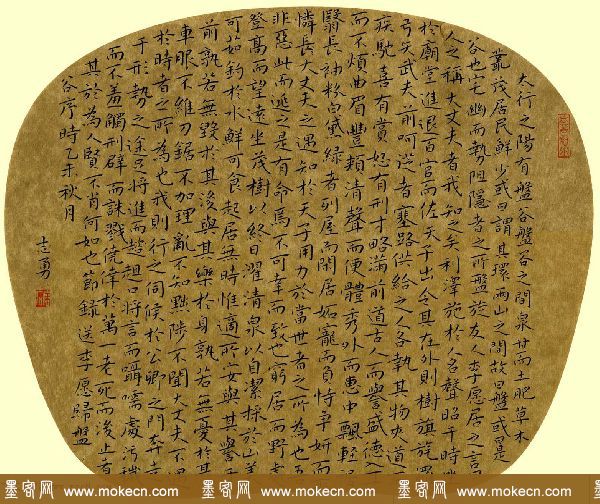 大行之陽有盤谷盤谷之間泉甘而土肥草木
叢茂居民鮮少或曰謂其環兩山之間故曰盤或曰是
谷也宅幽而勢阻隱者之所盤旋友人李愿居之言曰
人之稱大丈夫者我知之矣利澤施於人名聲昭于時坐
於廟堂進退百官而佐天子出令其在外則樹旗旄羅
弓矢武夫前呵從者塞路供給之人各執其物夾道
疾馳喜有賞怒有刑才畯滿前道古今而譽盛德入
而不煩曲眉豐頰清聲而便體秀外而惠中飄輕
翳長袖粉白黛綠者列屋而閑居妬寵而負恃爭妍而
憐大丈夫之遇知於天子用力於當世者之所為也吾
非惡此而逃之是有命焉不可幸而致也窮居而野
登高而望遠坐茂樹以終日濯清泉以自潔採於山美
可茹釣於水鮮可食起居無時惟適所安與其譽
前孰若無毀於其後與其樂於身孰若無憂於其
車服不維刀鋸不加理亂不知黜陟不聞大丈夫不
於時者之所為也我則行之伺候於公卿之門奔走
于形勢之途足將進而趑趄口將言而囁嚅處污穢
而不羞觸刑辟而誅戮僥倖於萬一老死而後止者
其於為人賢不肖何如也節錄送李愿歸盤
谷序時乙秋月
志勇
墨客网 www.mokecn.com 墨客网 www.mokecn.com 墨客网 www.mokecn.com